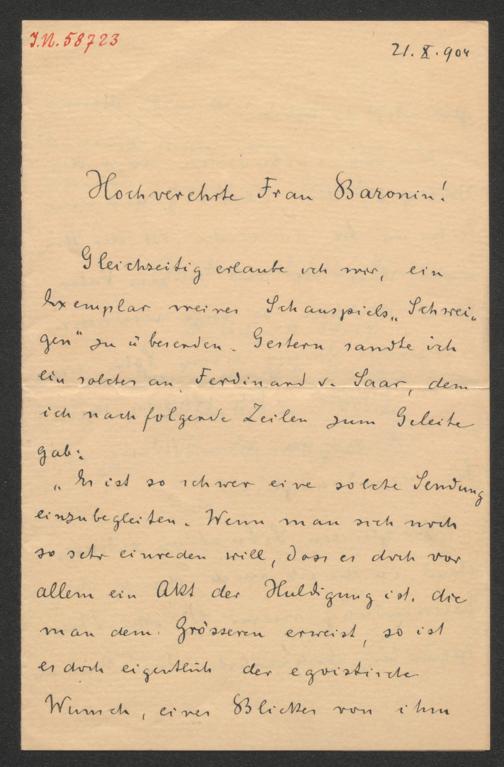 J.N. 58723
21. X. 904
Hochverehrte Frau Baronin!
Gleichzeitig erlaube ich mir, ein
Exemplar meines Schauspiels „Schwei-
gen" zu übersenden. Gestern sandte ich
ein solches an Ferdinand v. Saar, dem
ich nachfolgende Zeilen zum Geleite
gab:
„Es ist so schwer eine solche Sendung
einzubegleiten. Wenn man sich noch
so sehr einreden will, dass es doch vor
allem ein Akt der Huldigung ist, die
man dem Grösseren erweist, so ist
es doch eigentlich der egoistische
Wunsch, eines Blickes von ihm